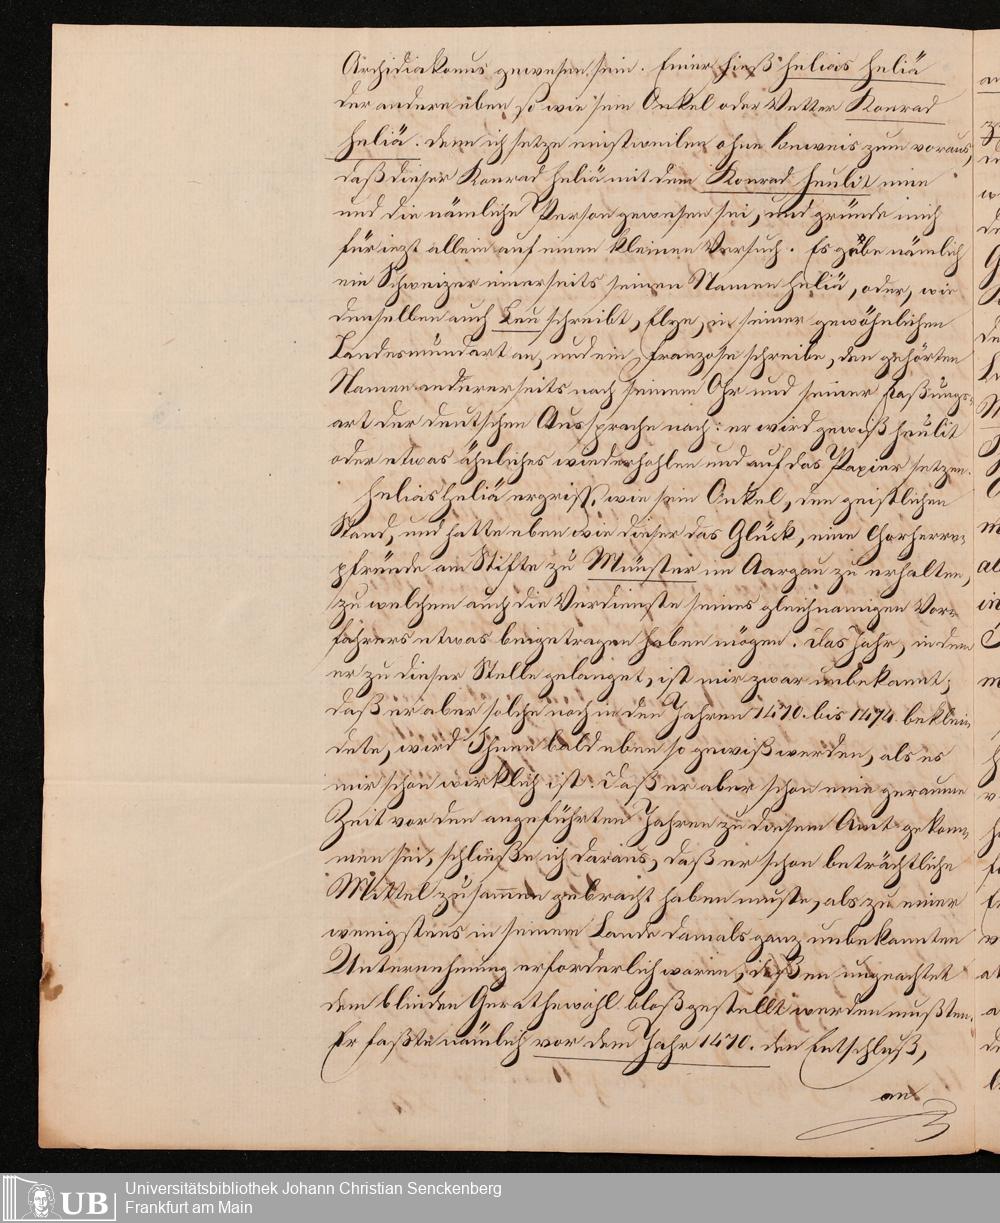 Archidiakonus gewesen sein. Einer hieß Helias Heliä
der andere eben so wie sein Onkel oder Vetter Konrad
Heliä. Denn ich setze einstweilen ohne Beweis zum voraus,
daß dieser Konrad Heliä mit dem Konrad Heulit eine
und die nämliche Person gewesen sei, und gründe mich
für iezt allein auf einen kleinen Versuch. Es gäbe nämlich
ein Schweizer einerseits seinen Namen Heliä, oder, wie
denselben auch Leu schreibt, Elye, in seiner gewöhnlichen
Landesmundart an, und ein Franzose schreibe, den gehörten
Namen andererseits nach seinem Ohr und seiner Faßungs-
art der deutschen Aussprache nach: er wird gewiß Heulit
oder etwas ähnliches wiederhohlen und auf das Papier setzen.
Helias Heliä ergriff, wie sein Onkel, den geistlichen
Stand, und hatte eben wie dieser das Glück, eine Chorherrn-
pfründe am Stifte zu Münster im Aargau zu erhalten,
zu welchem auch die Verdienste seines gleichnamigen Vor-
fahrers etwas beigetragen haben mögen. Das Jahr, in dem
er zu dieser Stelle gelanget, ist mir zwar unbekannt;
daß er aber solche noch in den Jahren 1470. bis 1474. beklei-
dete, wird Ihnen bald eben so gewiß werden, als es
mir schon wirklich ist. Daß er aber schon eine geraume
Zeit vor den angeführten Jahren zu diesem Amt gekom-
men sei, schließe ich daraus, daß er schon beträchtliche
Mittel zusammen gebracht haben muste, als zu einer
wenigstens in seinem Lande damals ganz unbekannten
Unternehmung erforderlich waren, dießen ungeachtet
dem blinden Gerathewohl bloßgestellt werden mußten.
Er faßte nämlich vor dem Jahr 1470. den Entschluß,
an
Universitätsbibliothek Johann Christian Senckenberg
Frankfurt am Main
UB